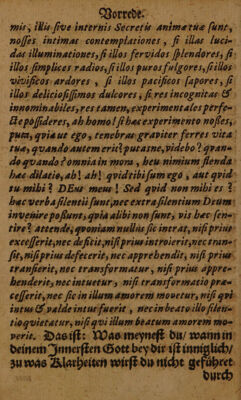 Vorrede.
mis, illis sive internis Secretis animæ tuæ sunt,
nosses intimas contemplationes, si illas luci-
das illuminationes, si illos fervidos splendores, si
illos simplices radios, si illos puros fulgores, si illos
vivificos ardores, si illos pacificos sapores, si
illos deliciosissimos dulcores, si res incognitas &
innominabiles, res tamen, experimentales perfe-
cte possideres, ah homo! si hæc experimento nosses,
puta, qvia ut ego, tenebras graviter ferres vitæ
tuæ, qvando autem erit? putasne, videbo? qvan-
do qvando? omnia in mora, heu nimium flenda
hæc dilatio, ah! ah! qvid tibi sum ego, aut qvid
tu mihi? DEus meus! Sed qvid non mihi es?
hæc verba silentii sunt, nec extra silentium Deum
invenire possunt, qvia alibi non sunt, vis hæc sen-
tire? attende, qvoniam nullus sic intrat, nisi prius
excesserit, nec deficit, nisi prius introierit, nec tran-
sit, nisi prius defecerit, nec apprehendit, nisi prius
transierit, nec transformatur, nisi prius appre-
henderit, nec intuetur, nisi transformatio præ-
cesserit, nec sic in illum amorem movetur, nisi qvi
intus & valde intus fuerit, nec in beato illo silen-
tio qvietatur, nisi qvi illum beatum amorem mo-
verit. Das ist: Was meynest du, wann in
deinem Innersten Gott bey dir ist inniglich,
zu was Klarheiten wirst du nicht geführet
durch